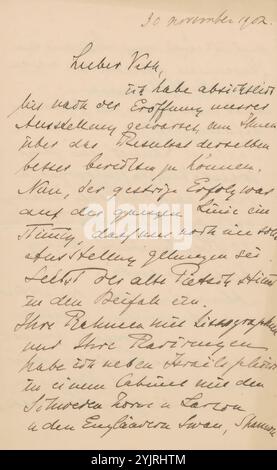 30 november 1902.
Lieber Veth,
ich habe absichtlich
bis nach der Eröffnung unsrer
Ausstellung gewartet, um Ihnen
über das Resultat derselben
besser berichten zu können.
Nun, der gestrige Erfolg war
auf der ganzen Linie ein
, dass uns noch nie solche
Ausstellung gelungen sei.
Selbst der alte Pietsch stimmt
in den Beifall ein.
Ihre Rahmen mit Lithographien
und Ihre Radirungen
habe ich neben Israels placirt
in einem Cabinet mit den
Schweden Zorn u Larson
u den Engländern Swan, Shannon
alamy
Image ID: 2YJRHTM
www.alamy.com